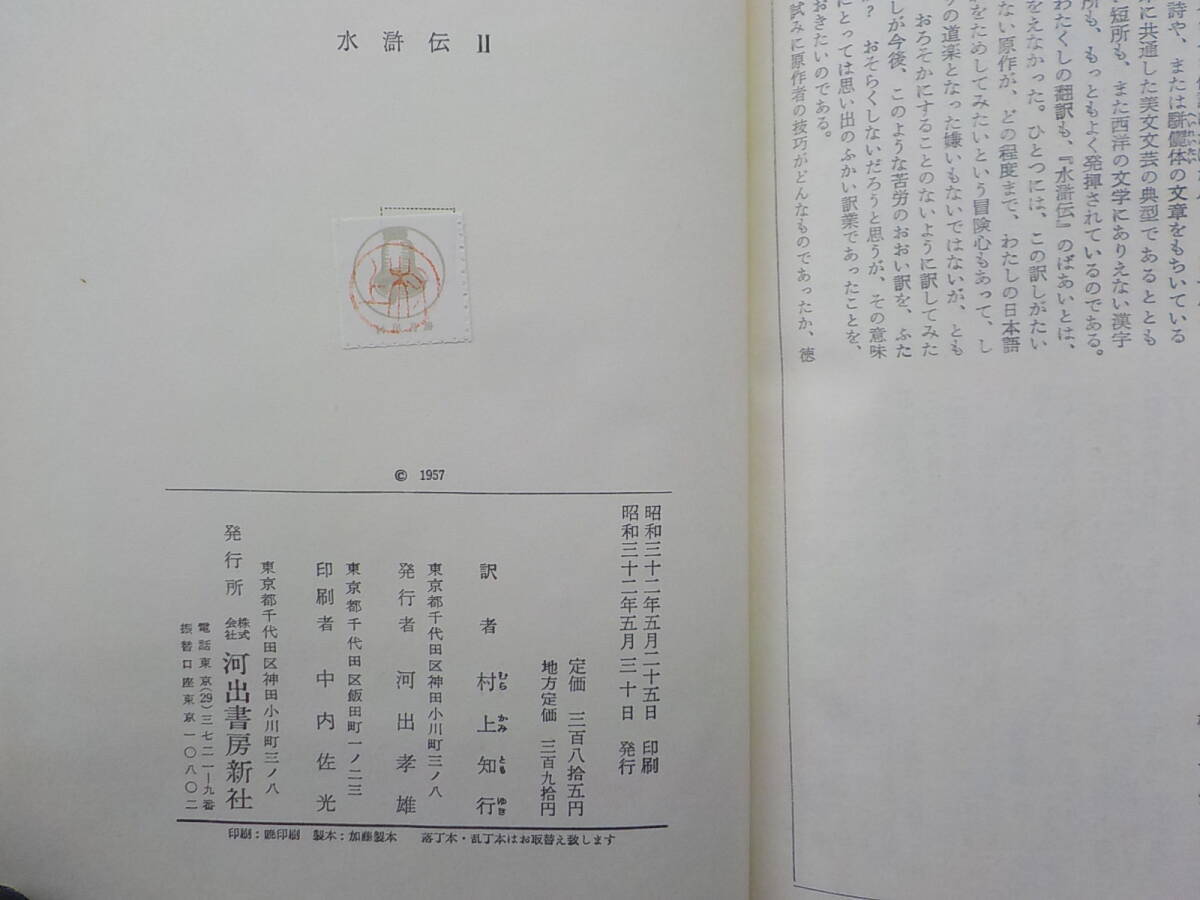 詩や、または駢儷体の文章をもちいている
に共通した美文文芸の典型であるととも
短所も、また西洋の文学にありえない漢字
所も、もっともよく発揮されているのである。
わたくしの翻訳も、『水滸伝』のばあいとは、
をえなかった。ひとつには、この訳しがたい
ない原作が、どの程度まで、わたしの日本語
をためしてみたいという冒険心もあって、し
の道楽となった嫌いもないではないが、とも
おろそかにすることのないように訳してみた
しが今後、このような苦労のおおい訳を、ふた
? おそらくしないだろうと思うが、その意味
にとっては思い出のふかい訳業であったことを、
おきたいのである。
試みに原作者の技巧がどんなものであったか、徳
水滸伝 II
© 1957
昭和三十二年五月二十五日 印刷
昭和三十二年五月三十日 発行
定価 三百八拾五円
地方定価 三百九拾円
訳者 村上知行
むらかみともゆき
東京都千代田区神田小川町三ノ八
発行者 河出孝雄
東京都千代田区飯田町一ノ二三
印刷者 中内佐光
東京都千代田区神田小川町三ノ八
発行所 株式会社 河出書房新社
電話東京(29)三七二一—九番
振替口座東京一〇八〇二
印刷:暁印刷 製本:加藤製本 落丁本・乱丁本はお取替え致します